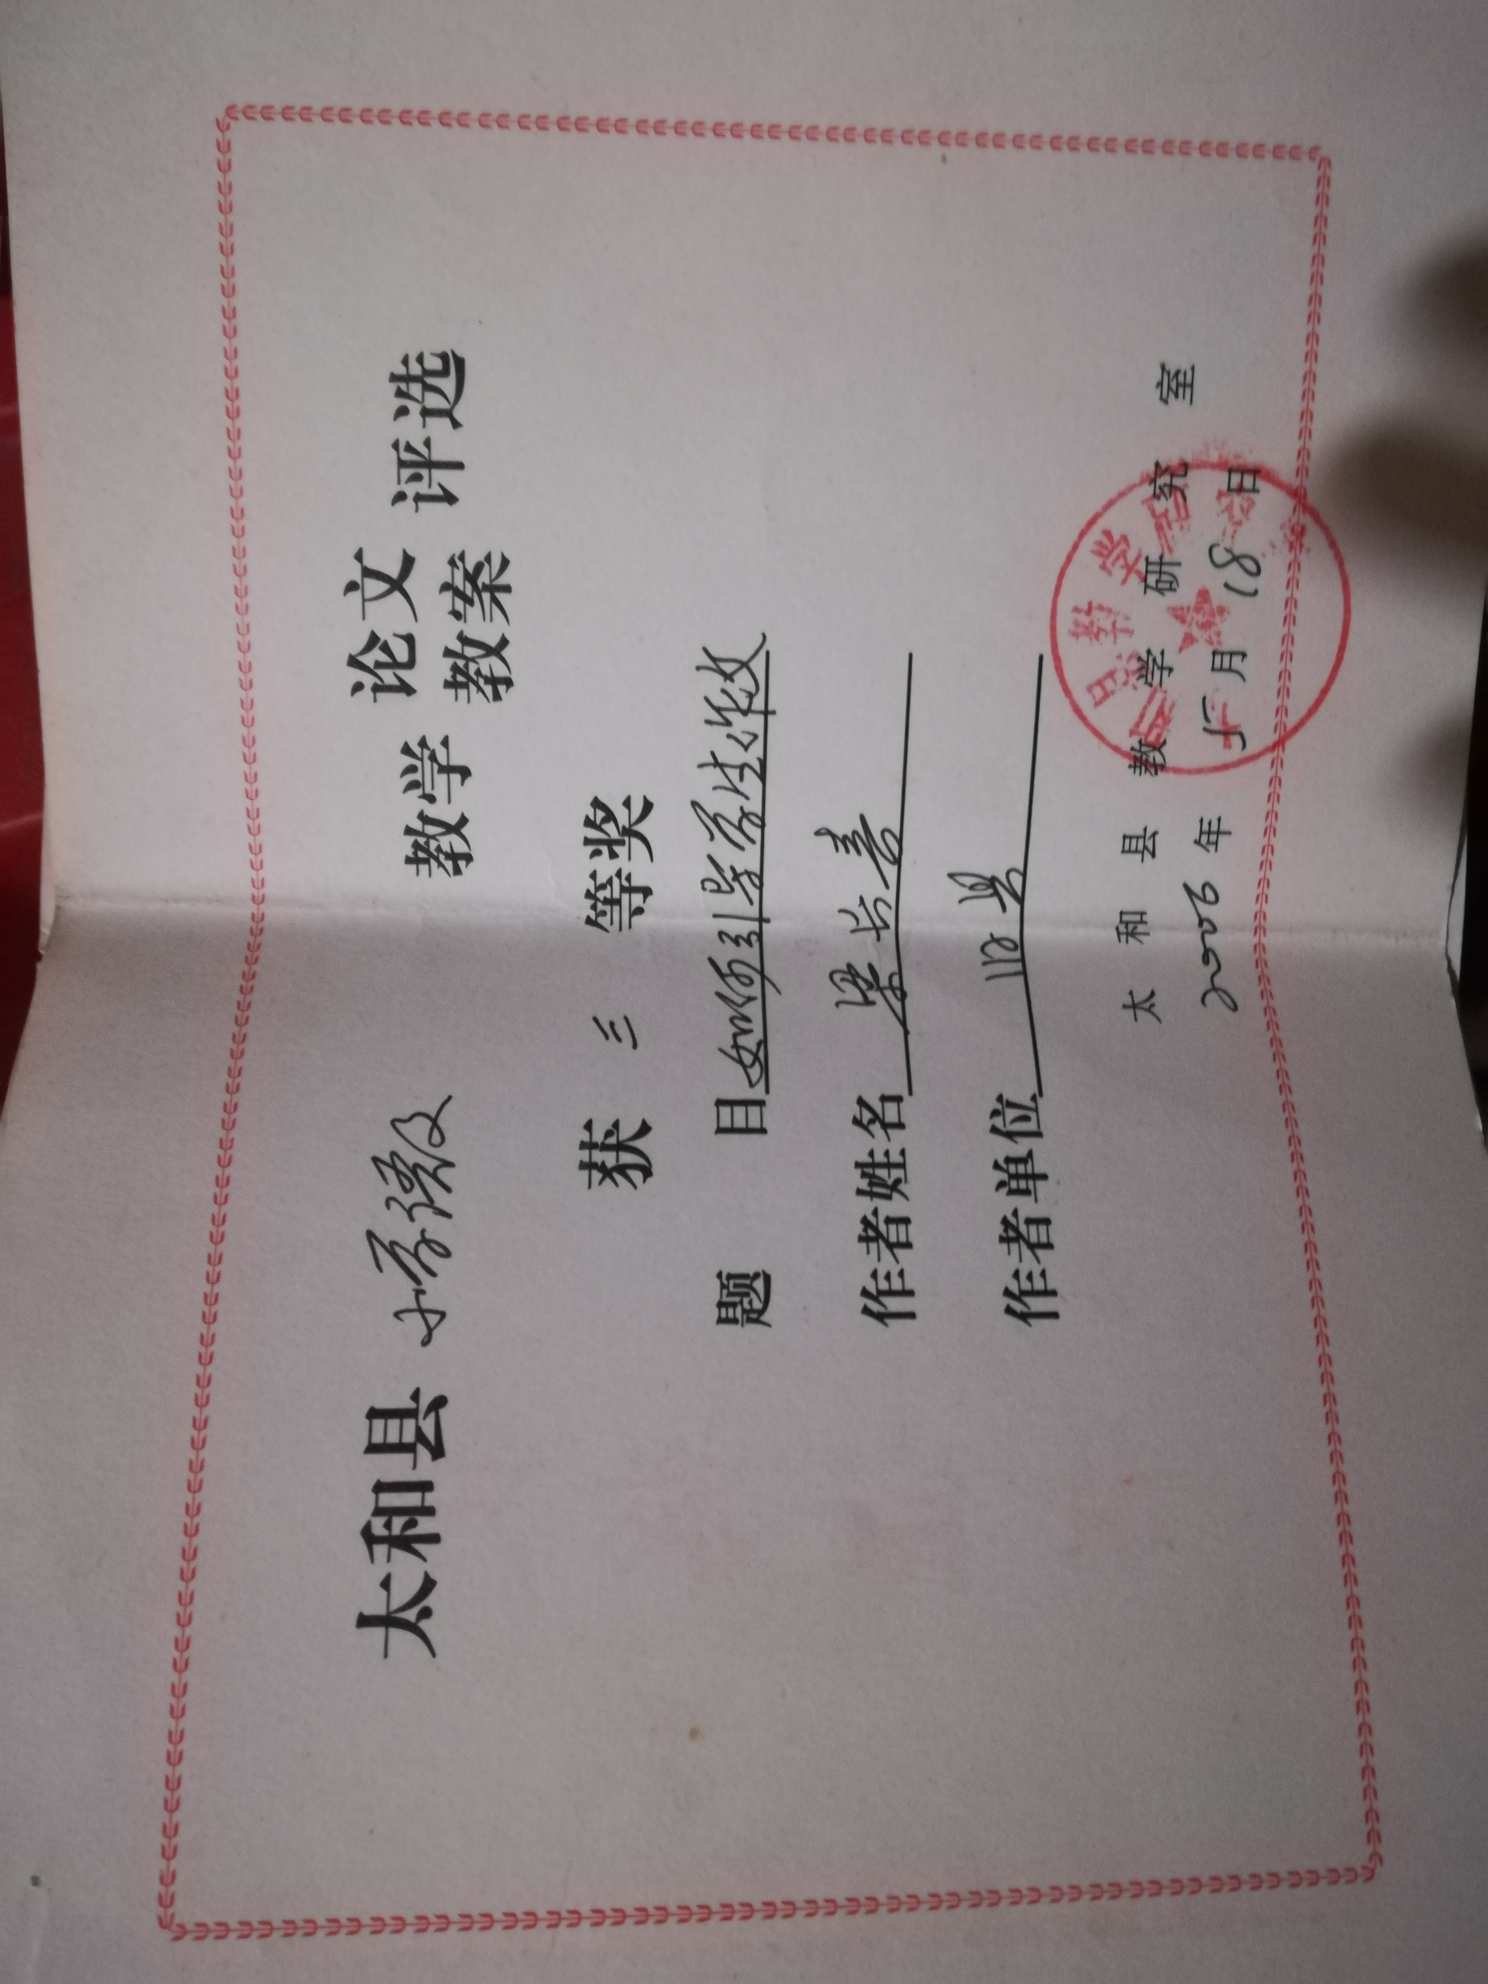 太和县 小学语文 教学 论文 评选
教案
获 三 等奖
题 目 如何引导学生作文
作者姓名 梁长春
作者单位 旧县
太和县教学研究室
2006年5月18日